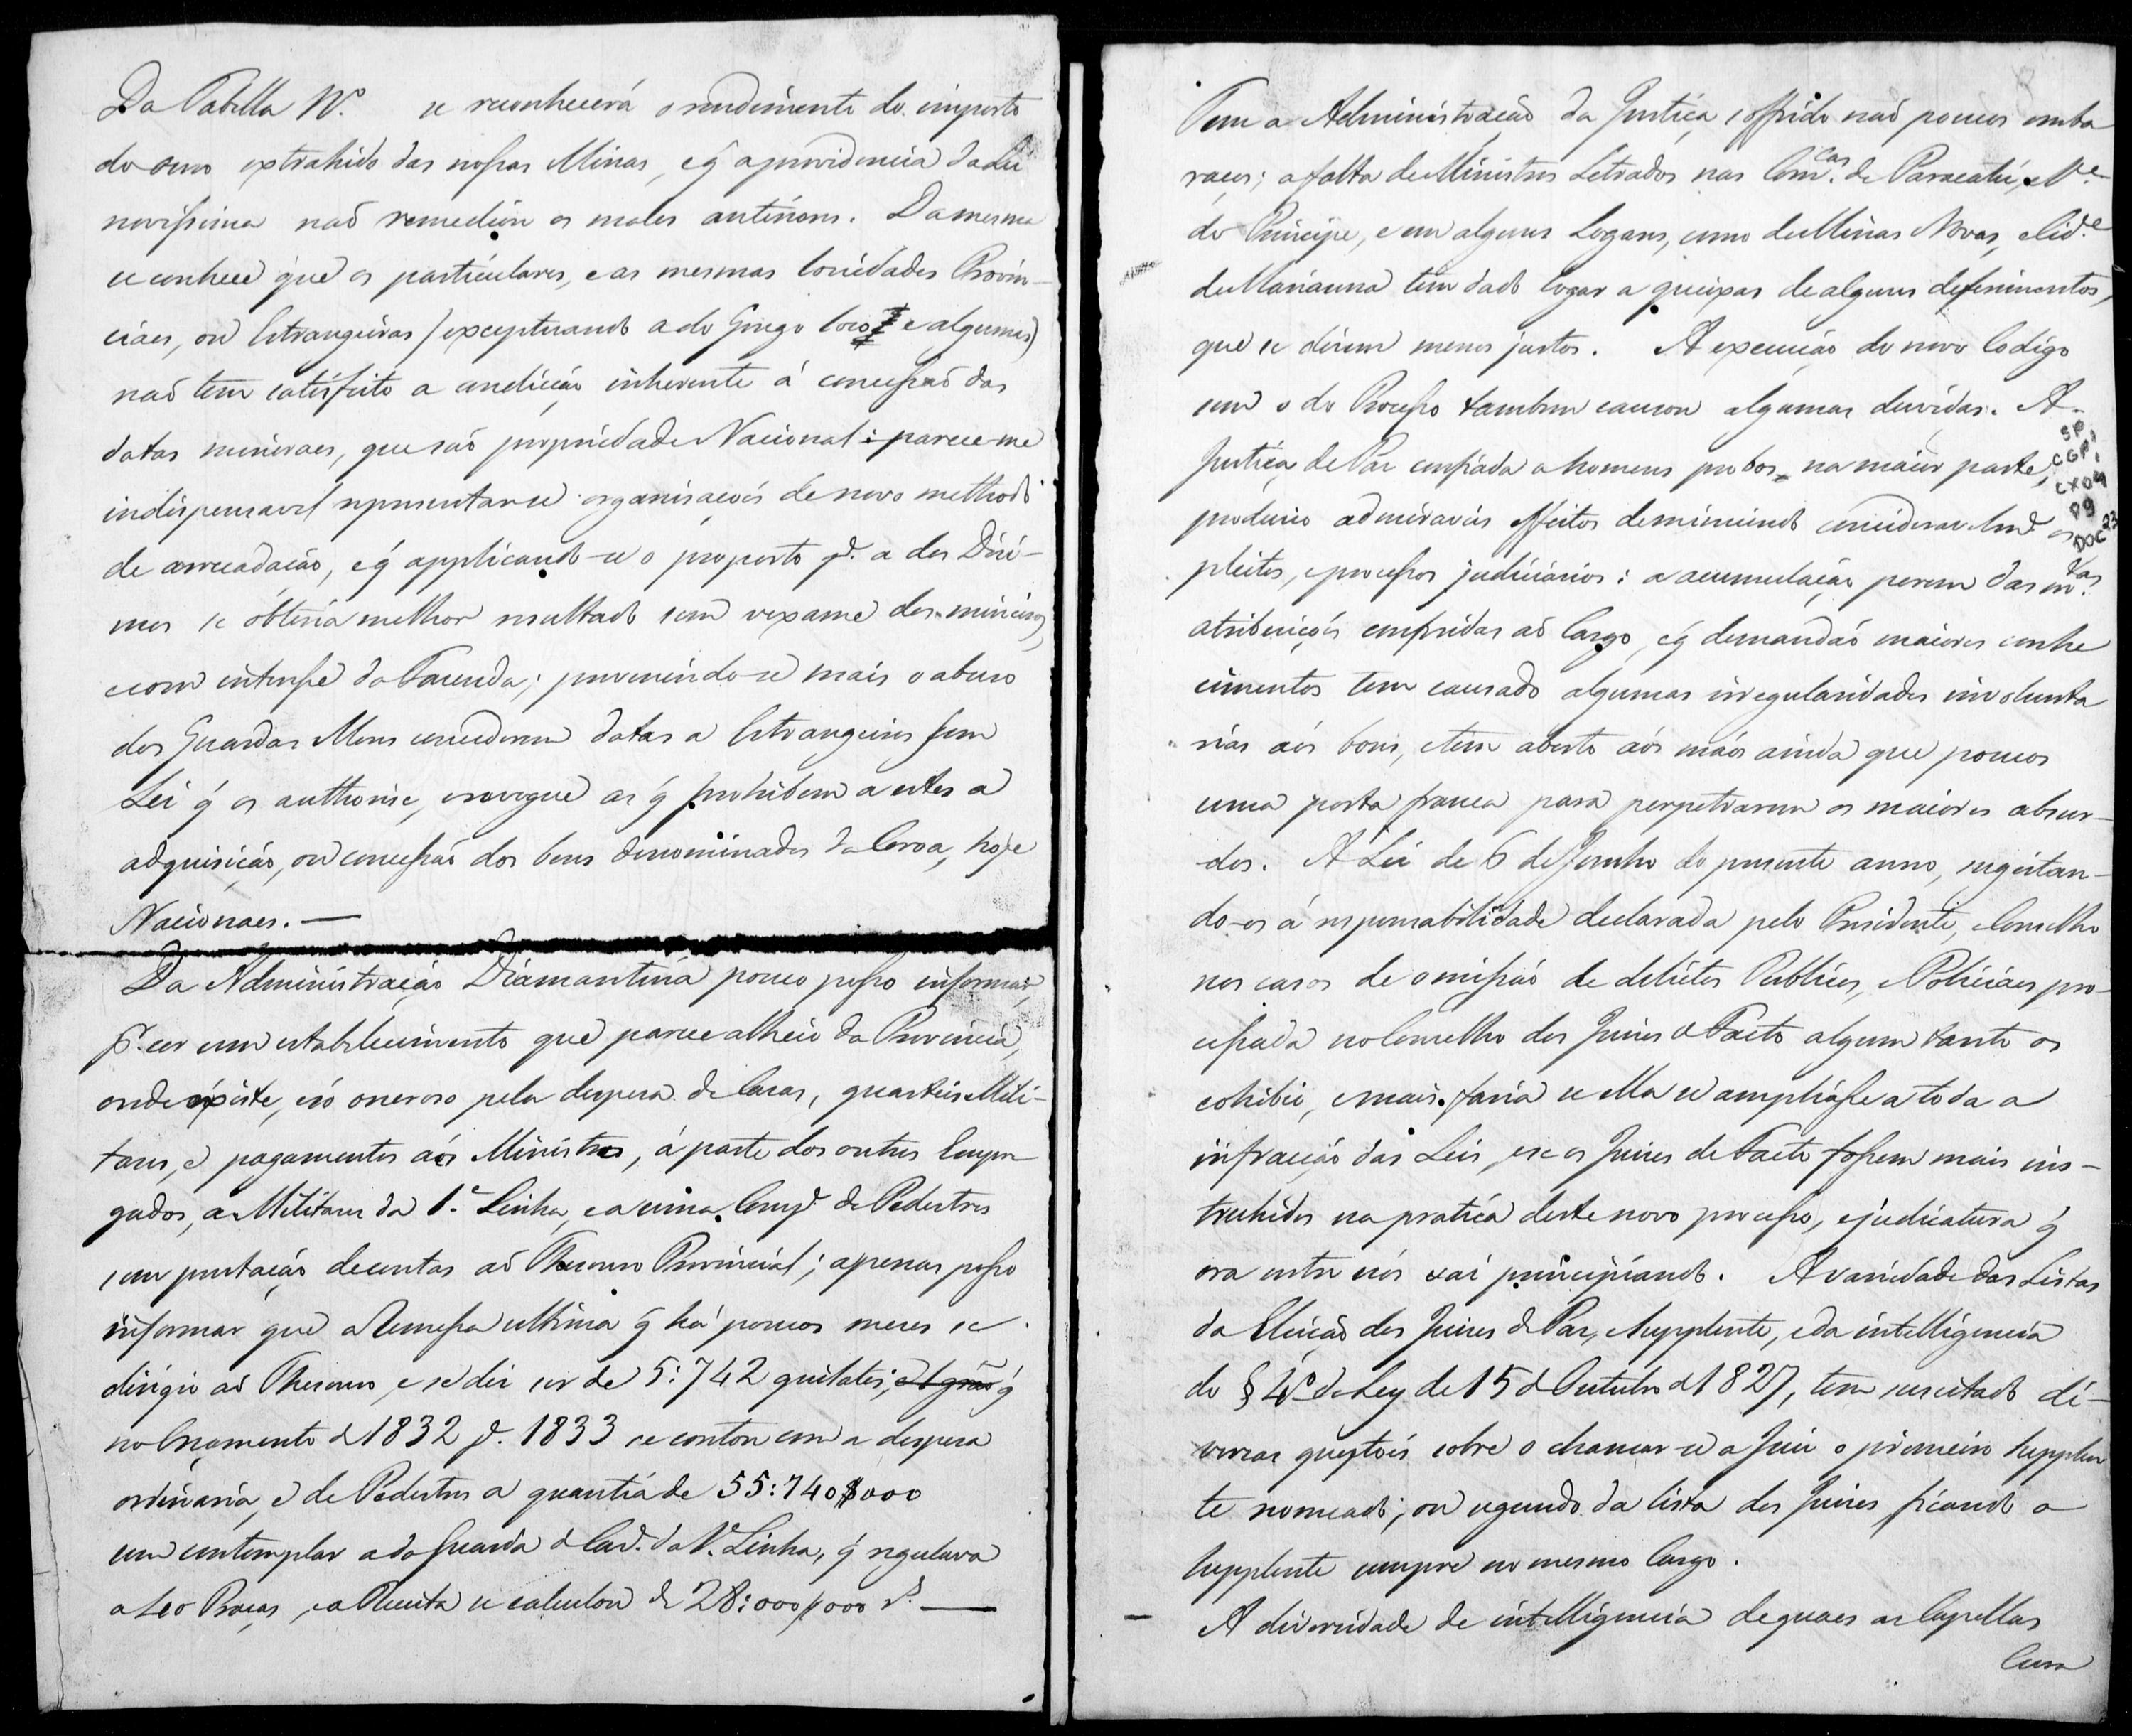 Da Tabella Nº. se reconhecerá o rendimento do imposto
do ouro extrahido das nossas Minas, e q̃ a providencia da Lei
novissima naõ remediou os males antériores. Da mesma
se conhece que os particulares, e as mesmas Sociedades Provin-
ciaes, ou Estrangeiras (exceptuando a do Gongo Soco e algumas)
naõ tem satisfeito a condicção inherente á concessaõ das
datas mineraes, que saõ propriedade Nacional: parece-me
indispensavel representar-se organisaçoẽs de novo methodo
de arrecadação, e q̃ applicando-se o proposto pª. a dos Dizi-
mos se obteria melhor resultado sem vexame dos mineiros,
e com interesse da Fazenda; prevenindo-se mais o abuso
dos Guardas Mores concederem datas a Estrangeiros sem
Lei q̃ os authorise, e revogue as q̃ prohibem a estes a
adquisição, ou concessaõ dos bens denominados da Coroa, hoje
Nacionaes. —
Da Administração Diamantina pouco posso informar,
pʳ. ser um estabelecimento que parece alheio da Provincia,
onde existe, e só oneroso pela despesa de Casas, quarteis Mili-
tares, e pagamentos aós Ministros, á parte dos outros Empre
gados, a Militares da 1ª. Linha, e a uma Compª. de Pedestres
sem prestação de contas aõ Thesouro Provincial; apenas posso
informar que a Remessa ultima q̃ há poucos meses se
dirigio aõ Thesouro, e se diz ser de 5:742 quilates; q̃
no Orçamento de 1832 pª. 1833 se contou com a despesa
ordinaria, e de Pedestres a quantia de 55:740$000
sem contemplar a da Guarda de Cavª. da 1ª. Linha, q̃ regulava
a 60 Praças, e a Receita se calculou de 28:000$000 rˢ. —
Tem a Administração da Justiça soffrido naõ poucos emba
raços; a falta de Ministros Letrados nas Comᶜᵃˢ. de Paracatú, e Vª.
do Principe, e em alguns Logares, como de Minas Novas, e Cidᵉ
de Marianna tem dado logar a queixas de alguns deferimentos,
que se dizem menos justos. A execução do novo Codigo
com o do Processo tambem causou algumas duvidas. A
Justiça de Paz confiada a homens probos na maior parte,
produzio admiraveis effeitos deminuindo consideravelmᵉ os
pleitos, e processos judiciarios: a acumulação porem das mᵗᵃˢ.
atribuiçoẽs conferidas aõ Cargo, e q̃ demandaõ maiores conhe
cimentos tem causado algumas irregularidades involunta
rias aós bons, e tem aberto aós máos ainda que poucos
uma porta franca para perpetrarem os maiores absur-
dos. A Lei de 6 de Junho do presente anno, sugeitan-
do-os á responsabilidade declarada pelo Presidente, e Conselho
nos casos de omissaõ de delictos Publicos, e Policiaes, pro-
cessada no Conselho dos Juizes de Facto algum tanto os
cohibio, e mais faria se ella se ampliasse a toda a
infracção das Leis, e se os Juizes de Facto fossem mais ins-
truhidos na pratica deste novo processo, e judicatura q̃
ora entre nós vai principiando. A variedade das Listas
da Eleição dos Juizes de Paz, e Supplente, e da intelligencia
do § 4º da Ley de 15 de Outubro de 1827, tem suscitado di-
versas questoẽs sobre o chamar-se a Juiz o primeiro Supplen
te nomeado; ou segundo da lista dos Juizes ficando o
Supplente sempre no mesmo Cargo.
— A diversidade de intelligencia de quaes as Capellas
Cura
SP,
CGP,
CX04
P9
DOC 23